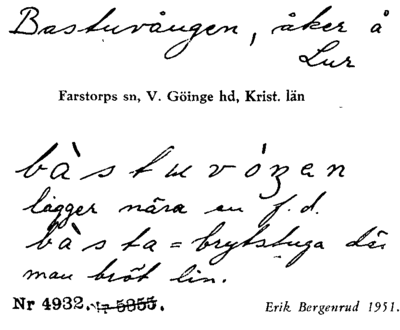 Bastuvången, åker å
Lur
Farstorps sn, V. Göinge hd, Krist. län
bàstuvóŋen
ligger nära en f.d.
bàsta = brytstuga där
man bröt lin.
Nr 4932.
Erik Bergenrud 1951.